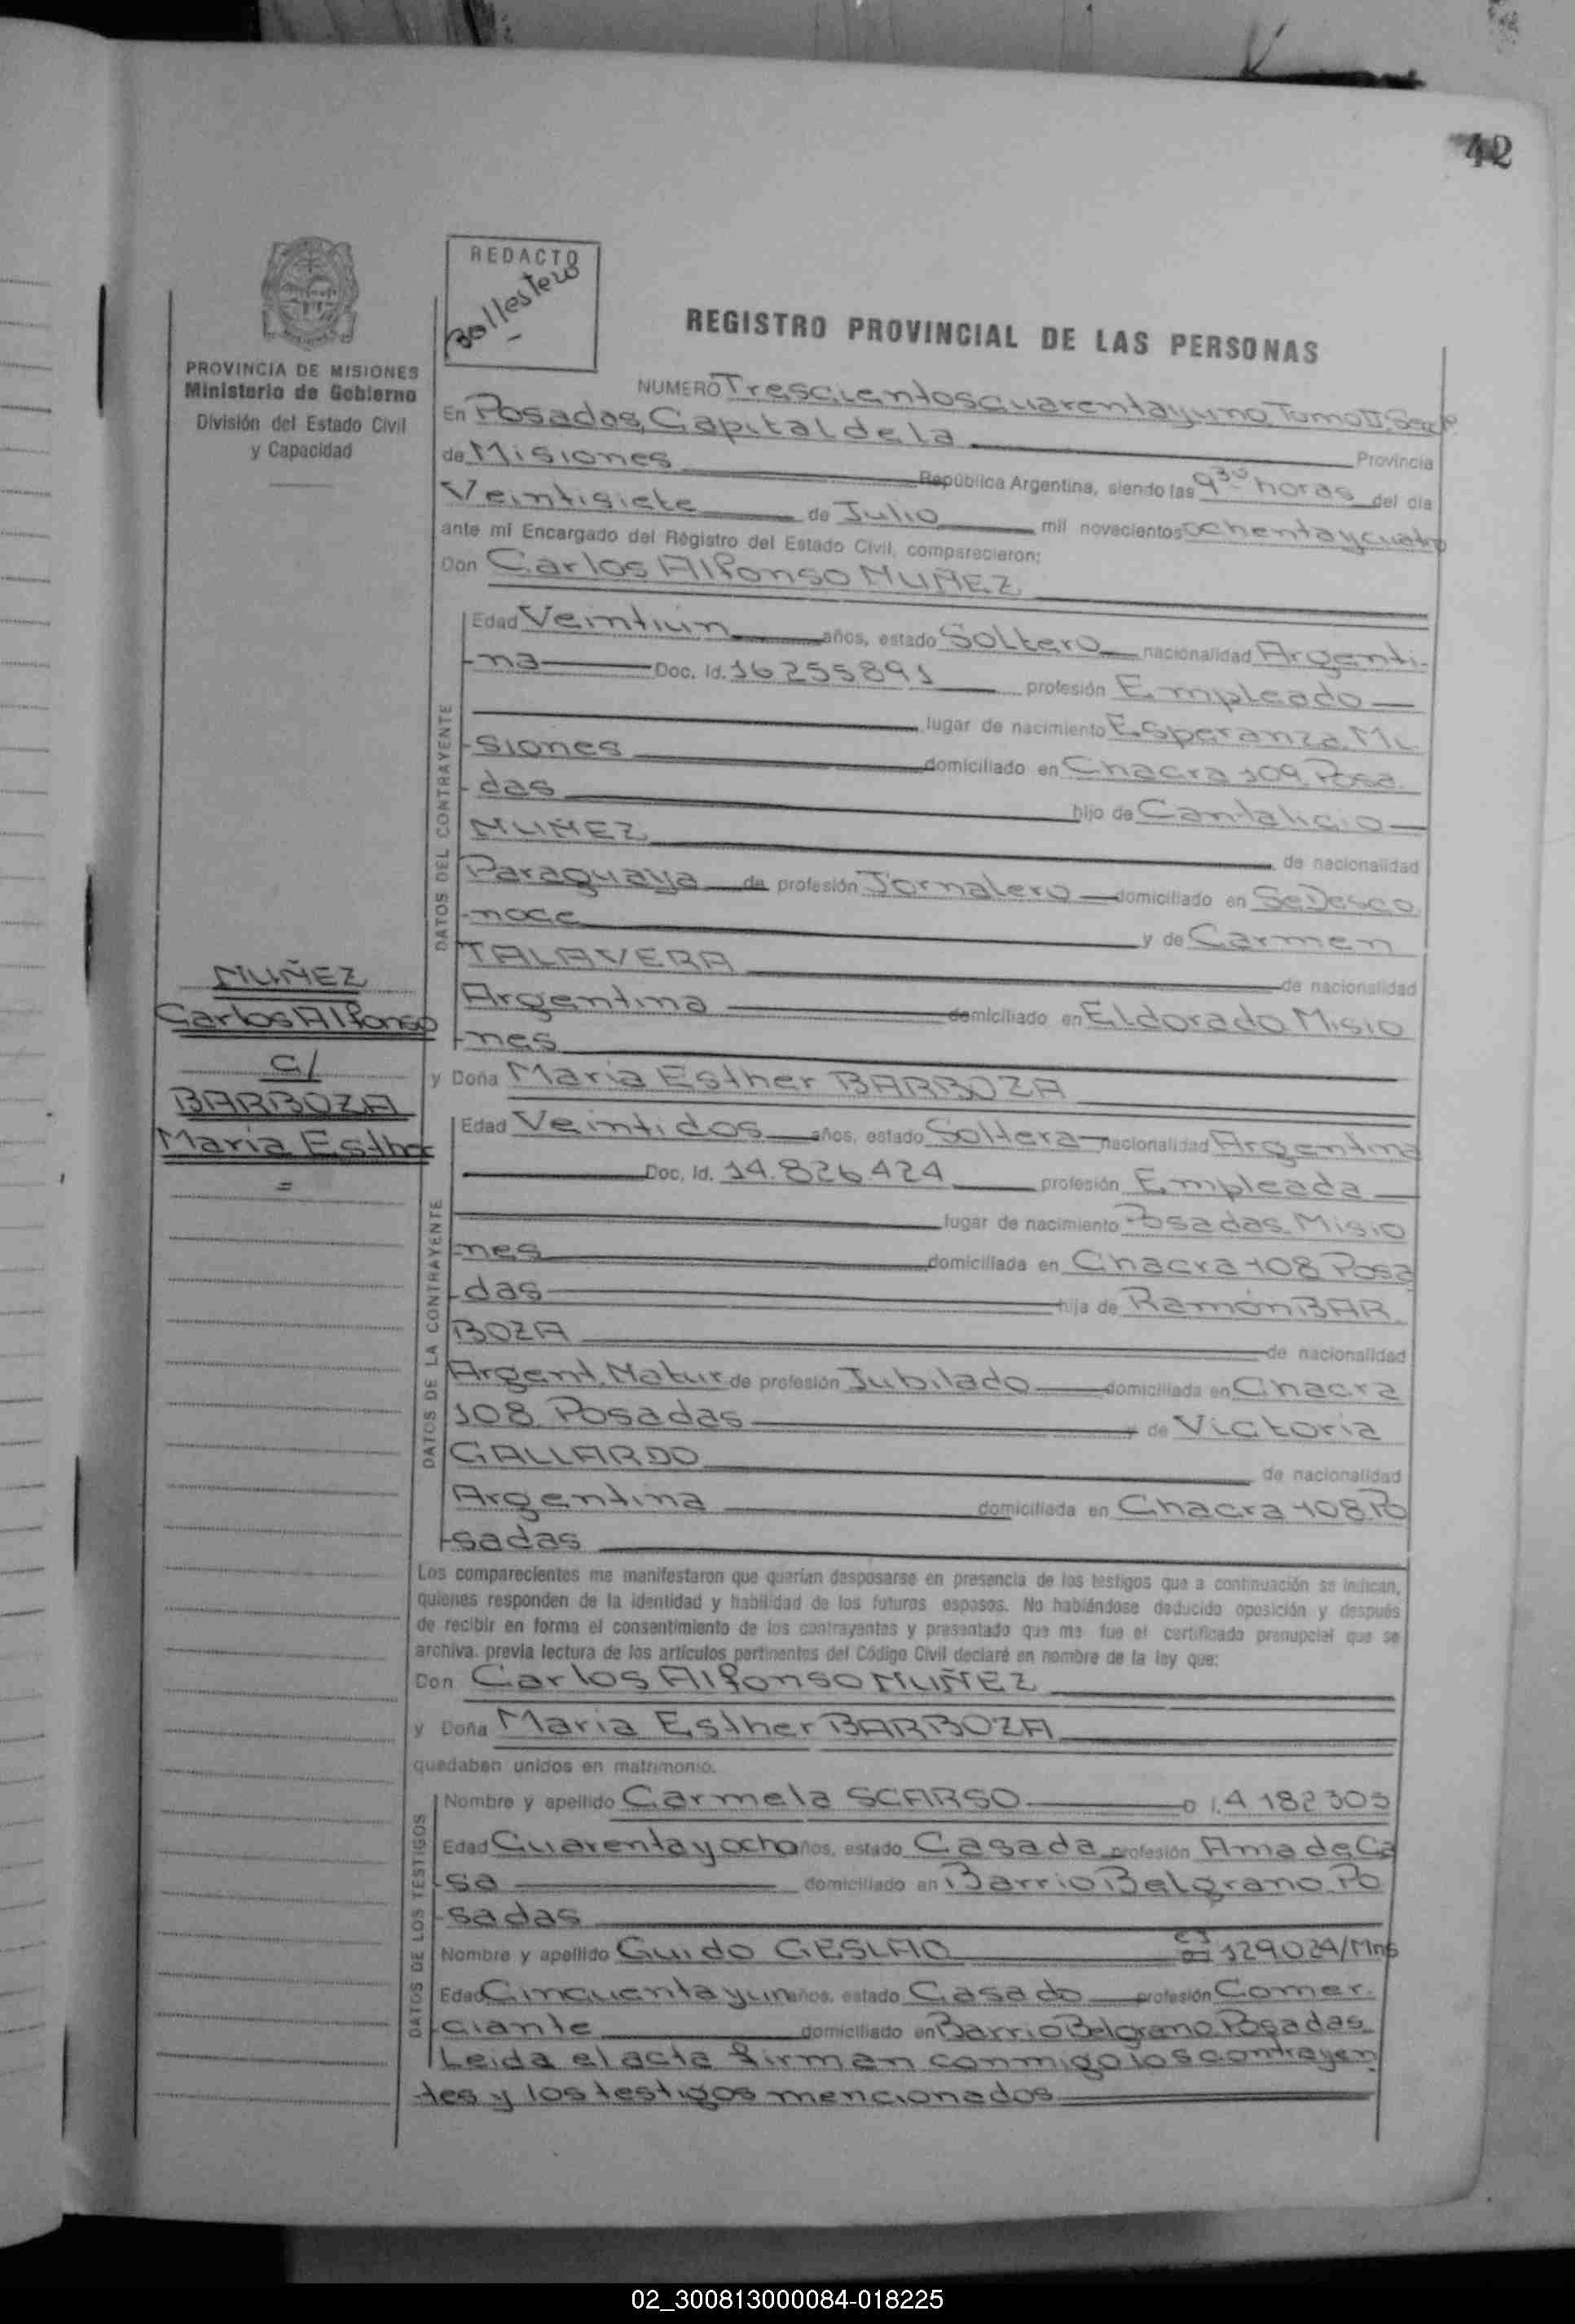 42
REDACTO
Ballestero
PROVINCIA DE MISIONES
Ministerio de Gobierno
División del Estado Civil
y Capacidad
REGISTRO PROVINCIAL DE LAS PERSONAS
NUMERO Trescientoscuarentayuno Tomo II
En Posadas, Capital de la Provincia
de Misiones República Argentina, siendo las 9 30 horas del día
Veintisiete de Julio mil novecientos ochentaycuatro
ante mi Encargado del Registro del Estado Civil, comparecieron:
Don Carlos Alfonso MUÑEZ
DATOS DEL CONTRAYENTE
Edad Veintiun años, estado Soltero nacionalidad Argenti-
-na Doc. Id. 16255891 profesión Empleado
lugar de nacimiento Esperanza. Mi
-siones domiciliado en Chacra 109. Posa
-das hijo de Cantalicio
MUÑEZ de nacionalidad
Paraguaya de profesión Jornalero domiciliado en Se Desco
-noce y de Carmen
TALAVERA de nacionalidad
Argentina domiciliado en Eldorado Misio
-nes
MUÑEZ
Carlos Alfonso
C/
BARBOZA
María Esther
=
y Doña María Esther BARBOZA
DATOS DE LA CONTRAYENTE
Edad Veintidos años, estado Soltera nacionalidad Argentina
Doc. Id. 14.826.424 profesión Empleada
lugar de nacimiento Posadas. Misio
-nes domiciliada en Chacra 108 Posa
-das hija de Ramón BAR
BOZA de nacionalidad
Argent. Natur de profesión Jubilado domiciliada en Chacra
108. Posadas y de Victoria
GALLARDO de nacionalidad
Argentina domiciliada en Chacra 108 Po
-sadas
Los comparecientes me manifestaron que querían desposarse en presencia de los testigos que a continuación se indican,
quienes responden de la identidad y habilidad de los futuros esposos. No habiéndose deducido oposición y después
de recibir en forma el consentimiento de los contrayentes y presentado que me fue el certificado prenupcial que se
archiva. previa lectura de los artículos pertinentes del Código Civil declaré en nombre de la ley que:
Don Carlos Alfonso MUÑEZ
y Doña María Esther BARBOZA
quedaban unidos en matrimonio.
DATOS DE LOS TESTIGOS
Nombre y apellido Carmela SCARSO D I. 4 182 305
Edad Cuarentayocho años, estado Casada profesión Ama de Ca
-sa domiciliado en Barrio Belgrano. Po
-sadas
Nombre y apellido Guido GESLAO CI 129.024/Mns
Edad Cincuentayun años, estado Casado profesión Comer.
-ciante domiciliado en Barrio Belgrano. Posadas.
Leida el acta firman conmigo los contrayen
-tes y los testigos mencionados
02_300813000084-018225